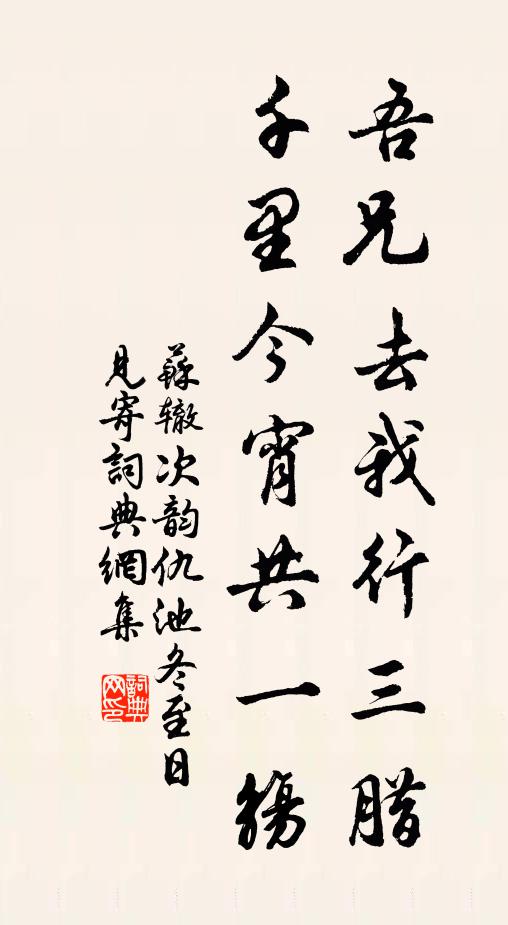 吾兄去我行三腊
千里今宵共一觞
蘇辙次韵仇池冬至日
見寄詞典網集
詞典
网印